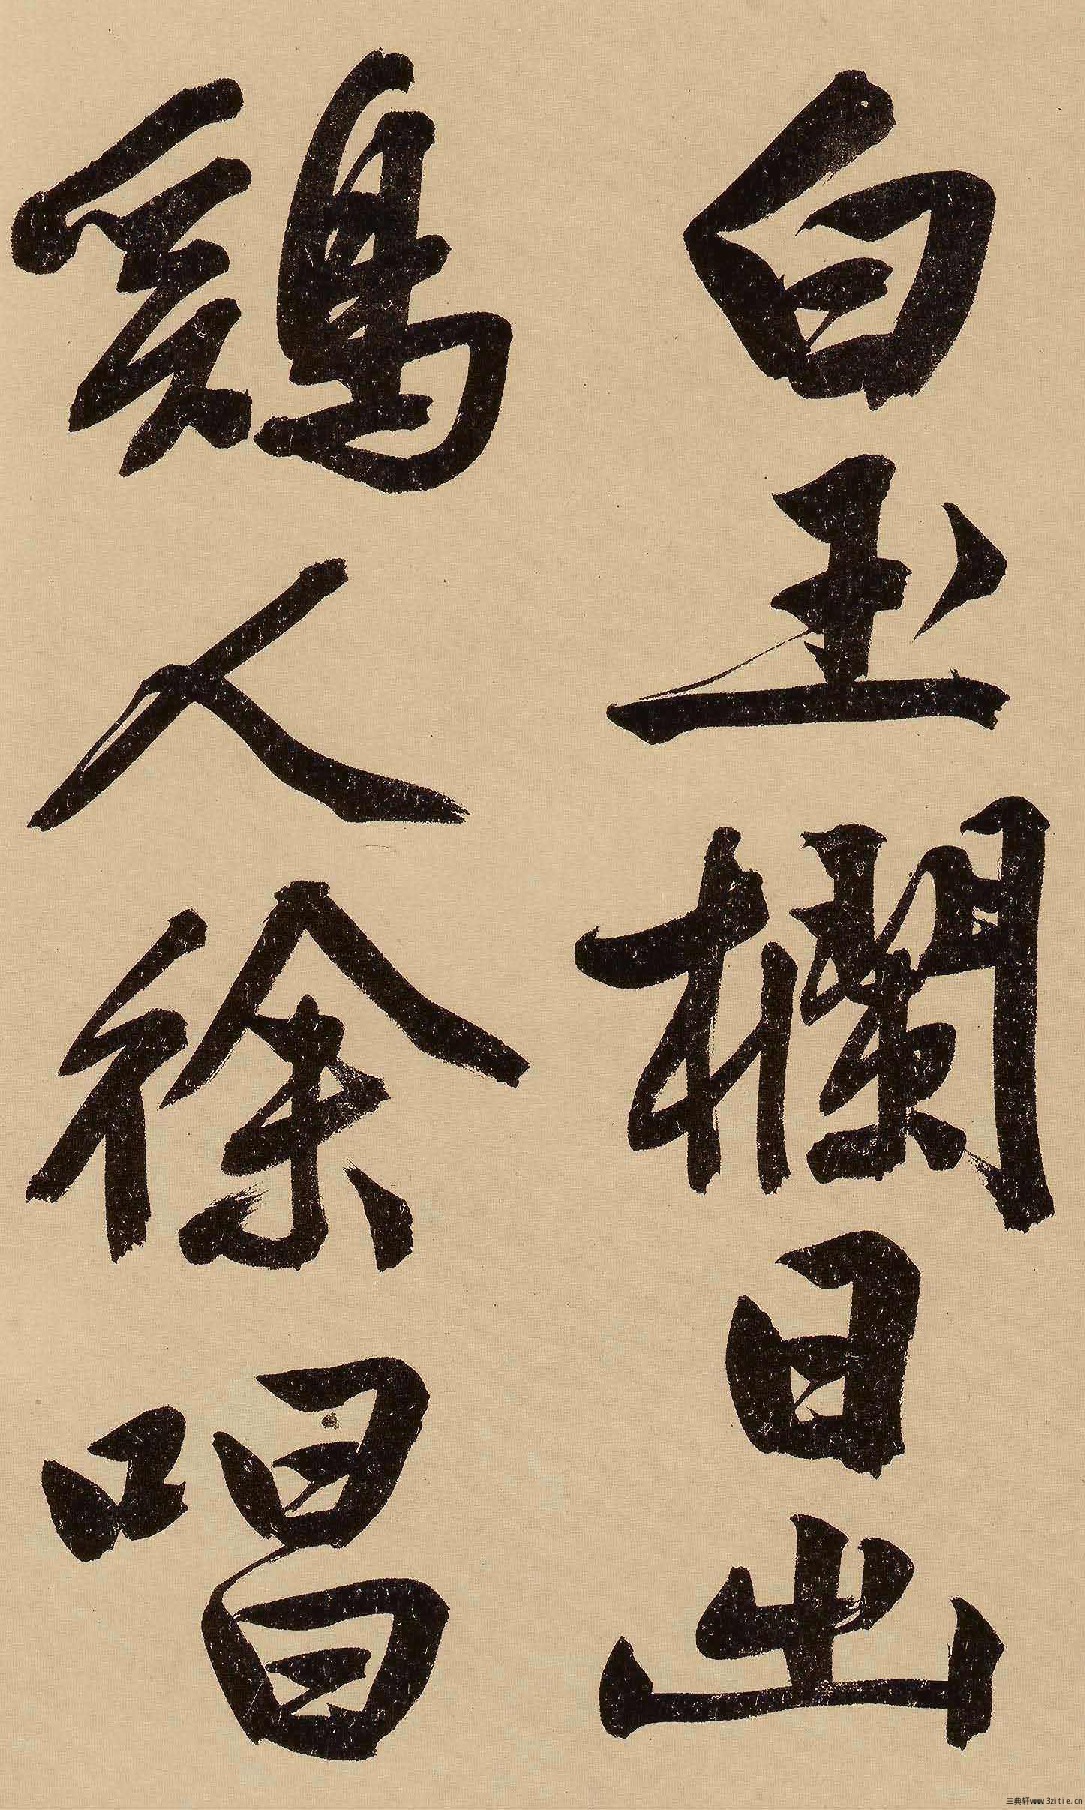 白玉欄日出
鷄人徐唱
三典轩www.3zitie.cn